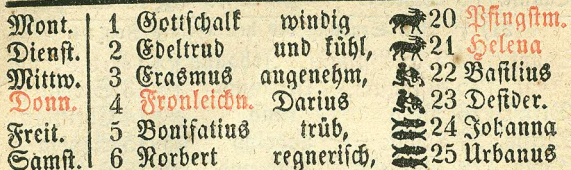 Mont. 1 Gottschalk windig 20 Pfingstm.
Dienst. 2 Edeltrud und kühl, 21 Helena
Mittw. 3 Erasmus angenehm, 22 Basilius
Donn. 4 Fronleichn. Darius 23 Desider.
Freit. 5 Bonifatius trüb, 24 Johanna
Samst. 6 Norbert regnerisch, 25 Urbanus